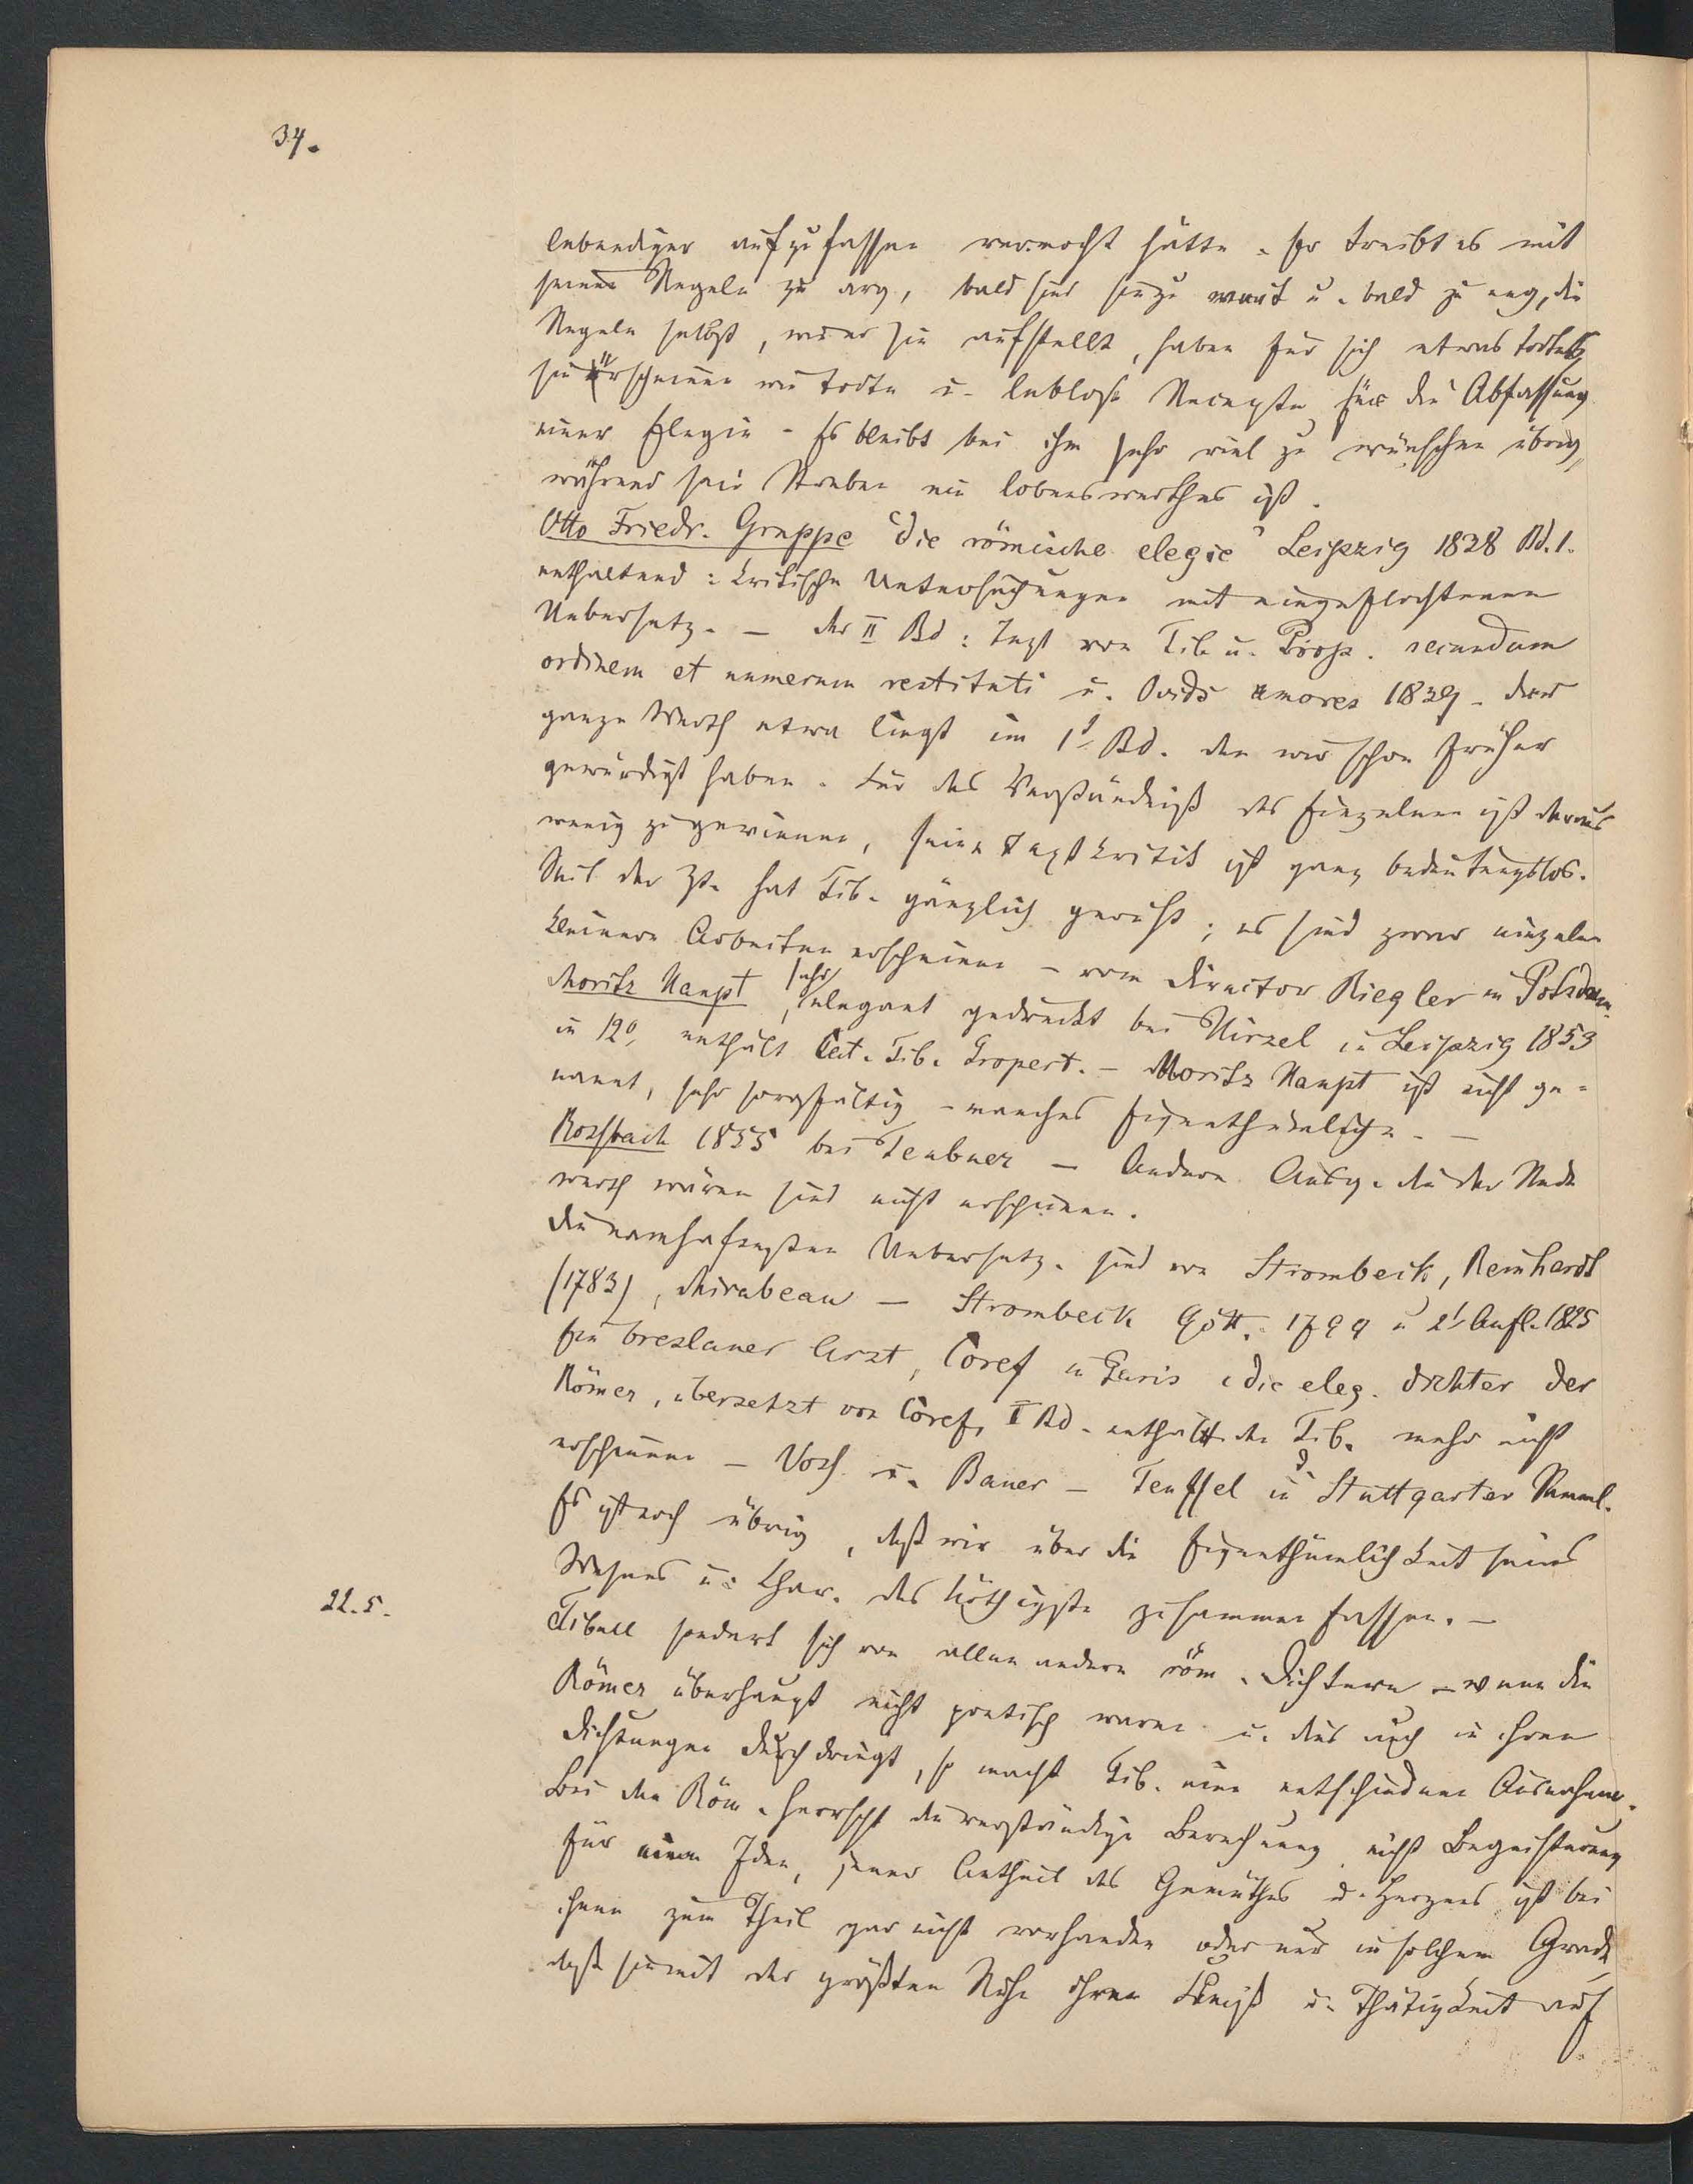 34.
lebendiger aufzufassen vermocht hätte. Er treibt es mit
seinen Regeln zu arg, bald sind sie zu weit u. bald zu eng, die
Regeln selbst, wie er sie aufstellt, haben für sich etwas todtes,
sie erscheinen wie todte u. leblose Recepte für die Abfassung
einer Elegie. Es bleibt bei ihm sehr viel zu wünschen übrig,
während sein Streben ein lobenswerthes ist.
Otto Friedr. Gruppe "die römische elegie" Leipzig 1838 Bd. 1.
enthaltend: kritische Untersuchungen mit eingeflochtenen
Uebersetz. – der II Bd: Text von Tib. u. Prop. secundum
ordinem et numerum restituti u. Ovids amores 1839. Der
ganze Werth etwa liegt im 1st Bd. den wir schon früher
gewürdigt haben. Für das Verständniß des Einzelnen ist daraus
wenig zu gewinnen, seine Textkritik ist ganz bedeutungslos.
Seit der Zt. hat Tib. gänzlich geruht; es sind zwar einzelne
kleinere Arbeiten erschienen – vom Director Riegler in Potsdam.
Moritz Haupt, sehr elegant gedruckt bei Hirzel in Leipzig 1853
in 12°, enthält Cat. Tib. Propert. – Moritz Haupt ist nicht ge-
nannt, sehr sorgfältig – manches Eigenthümliche. –
Rossbach 1855 bei Teubner – Andere Ausg. die der Rede
werth wären sind nicht erschienen.
Die namhaftesten Uebersetz. sind von Strombeck, Reinhardt
(1783), Mirabeau – Strombeck Gött. 1799 u 2t Aufl. 1825
Ein breslauer Arzt, Coref in Paris „die eleg. dichter der
Römer, übersetzt von Coref, I Bd. enthält den Tib. mehr nicht
erschienen – Voss u. Bauer – Teuffel in d. Stuttgarter Samml.
Es ist noch übrig, daß wir über die Eigenthümlichkeit seines
Wesens u: Char. das Nöthigste zusammen fassen. –
22. 5.
Tibull sondert sich von allen andern röm. Dichtern – wenn die
Römer überhaupt nicht poetisch waren u. dies auch in ihren
Dichtungen durchdringt, so macht Tib. eine entschiedene Ausnahme.
Bei den Röm. herrscht die verständige Berechnung nicht Begeisterung
für eine Idee, jener Antheil des Gemüthes u. Herzens ist bei
ihnen zum Theil gar nicht vorhanden oder nur in solchem Grade,
daß sie mit der größten Ruhe ihren Fleiß u. Thätigkeit auf